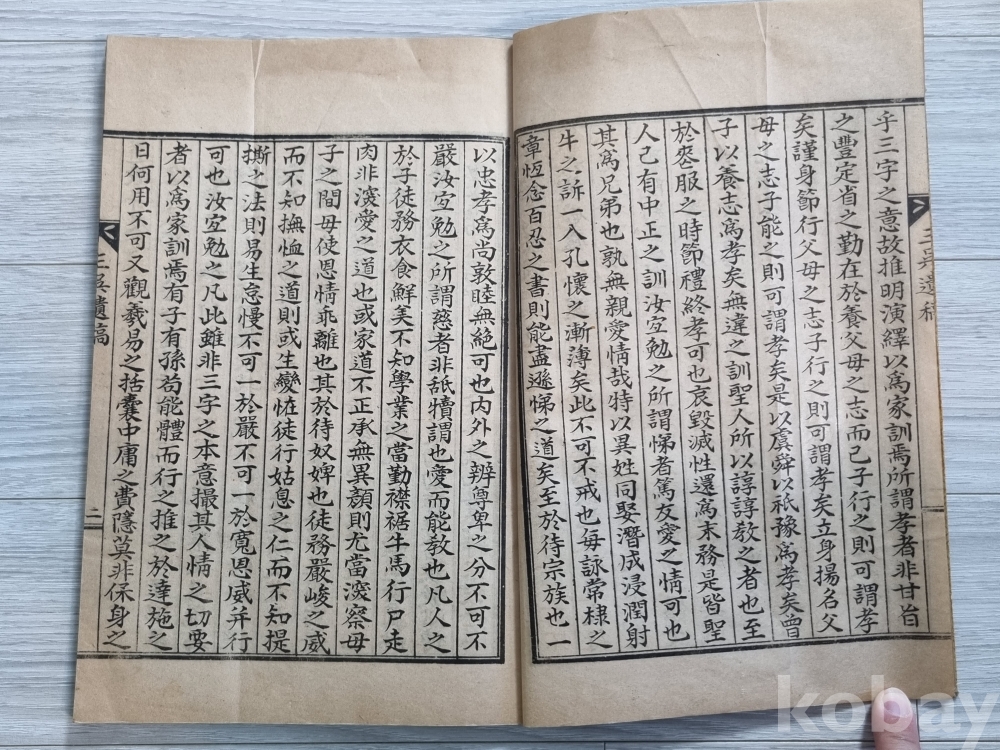 乎三字之意故推明演繹以爲家訓焉所謂孝者非甘旨
之豐定省之勤在於養父母之志而已子行之則可謂孝
矣謹身節行父母之志子行之則可謂孝矣立身揚名父
母之志子能之則可謂孝矣是以虞舜以祇豫爲孝矣曾
子以養志爲孝矣無違之訓聖人所以諄諄敎之者也至
於喪服之時節禮終孝可也哀毁滅性還爲末務是皆聖
人已有中正之訓汝宜勉之所謂悌者篤友愛之情可也
其爲兄弟也孰無親愛情哉特以異姓同娶潛成浸潤射
牛之訴一入孔懷之漸薄矣此不可不戒也每詠常棣之
章恆念百忍之書則能盡遜悌之道矣至於待宗族也一
以忠孝爲尚敦睦無絶可也内外之辨尊卑之分不可不
嚴汝宜勉之所謂慈者非舐犢謂也愛而能敎也凡人之
於子徒務衣食鮮美不知學業之當勤襟裾牛馬行尸走
肉非深愛之道也或家道不正承無異顏則尤當深察母
子之間毋使恩情乖離也其於待奴婢也徒務嚴峻之威
而不知撫恤之道則或生變恠徒行姑息之仁而不知提
撕之法則易生怠慢不可一於嚴不可一於寬恩威并行
可也汝宜勉之凡此雖非三字之本意撮其人情之切要
者以爲家訓焉有子有孫苟能體而行之推之於達施之
日何用不可又觀羲易之括囊中庸之費隱莫非保身之
遺稿
二
kobay